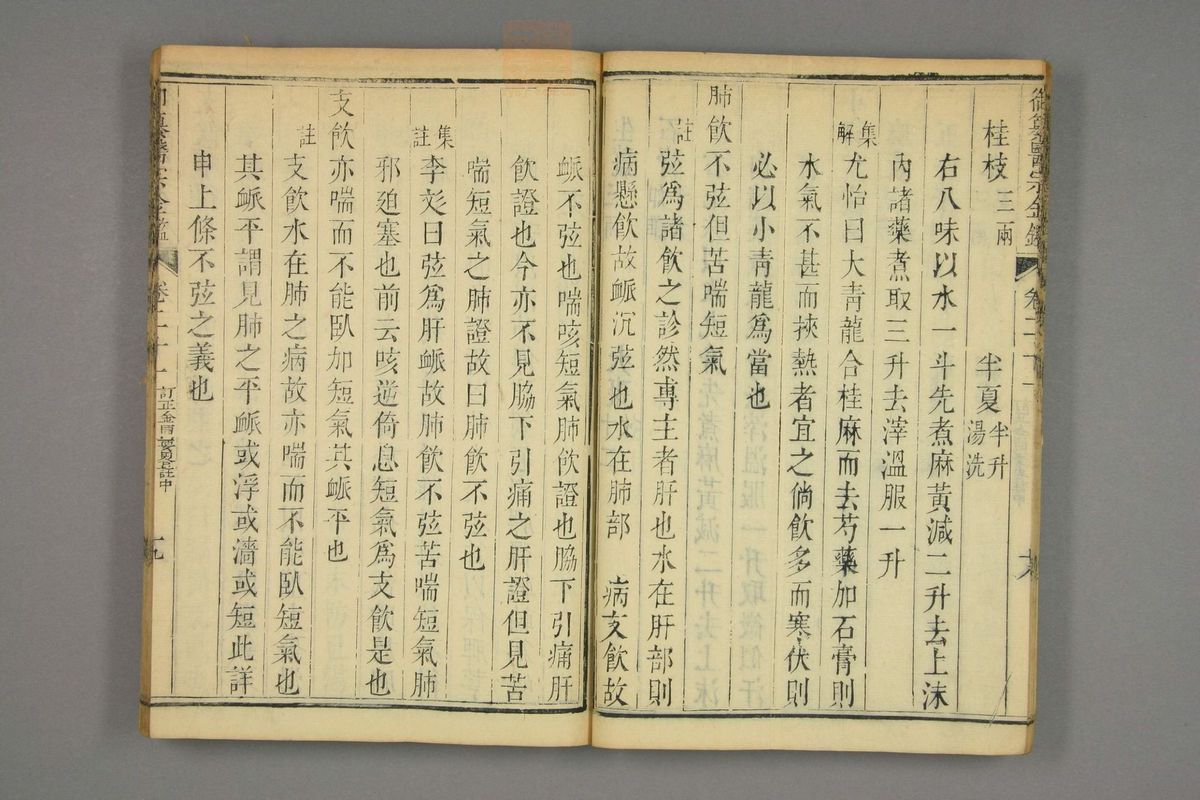 御纂醫宗金鑑 卷二十一
桂枝三兩 半夏半升湯洗
右八味以水一斗先煮麻黃減二升去上沫
內諸藥煮取三升去滓溫服一升
集解尤怡曰大青龍合桂麻而去芍藥加石膏則
水氣不甚而挾熱者宜之倘飲多而寒伏則
必以小青龍為當也
肺飲不弦但苦喘短氣
註弦爲諸飲之診然專主者肝也水在肝部則
病懸飲故衇沉弦也水在肺部 病支飲故
衇不弦也喘咳短氣肺飲證也脇下引痛肝
飲證也今亦不見脇下引痛之肝證但見苦
喘短氣之肺證故曰肺飲不弦也
集註李彣曰弦爲肝衇故肺飲不弦苦喘短氣肺
邪廹塞也前云咳逆倚息短氣爲支飲是也
支飲亦喘而不能臥加短氣其衇平也
註支飲水在肺之病故亦喘而不能臥短氣也
其衇平謂見肺之平衇或浮或濇或短此詳
申上條不弦之義也
卷二十一 訂正金匱要略註中 十九